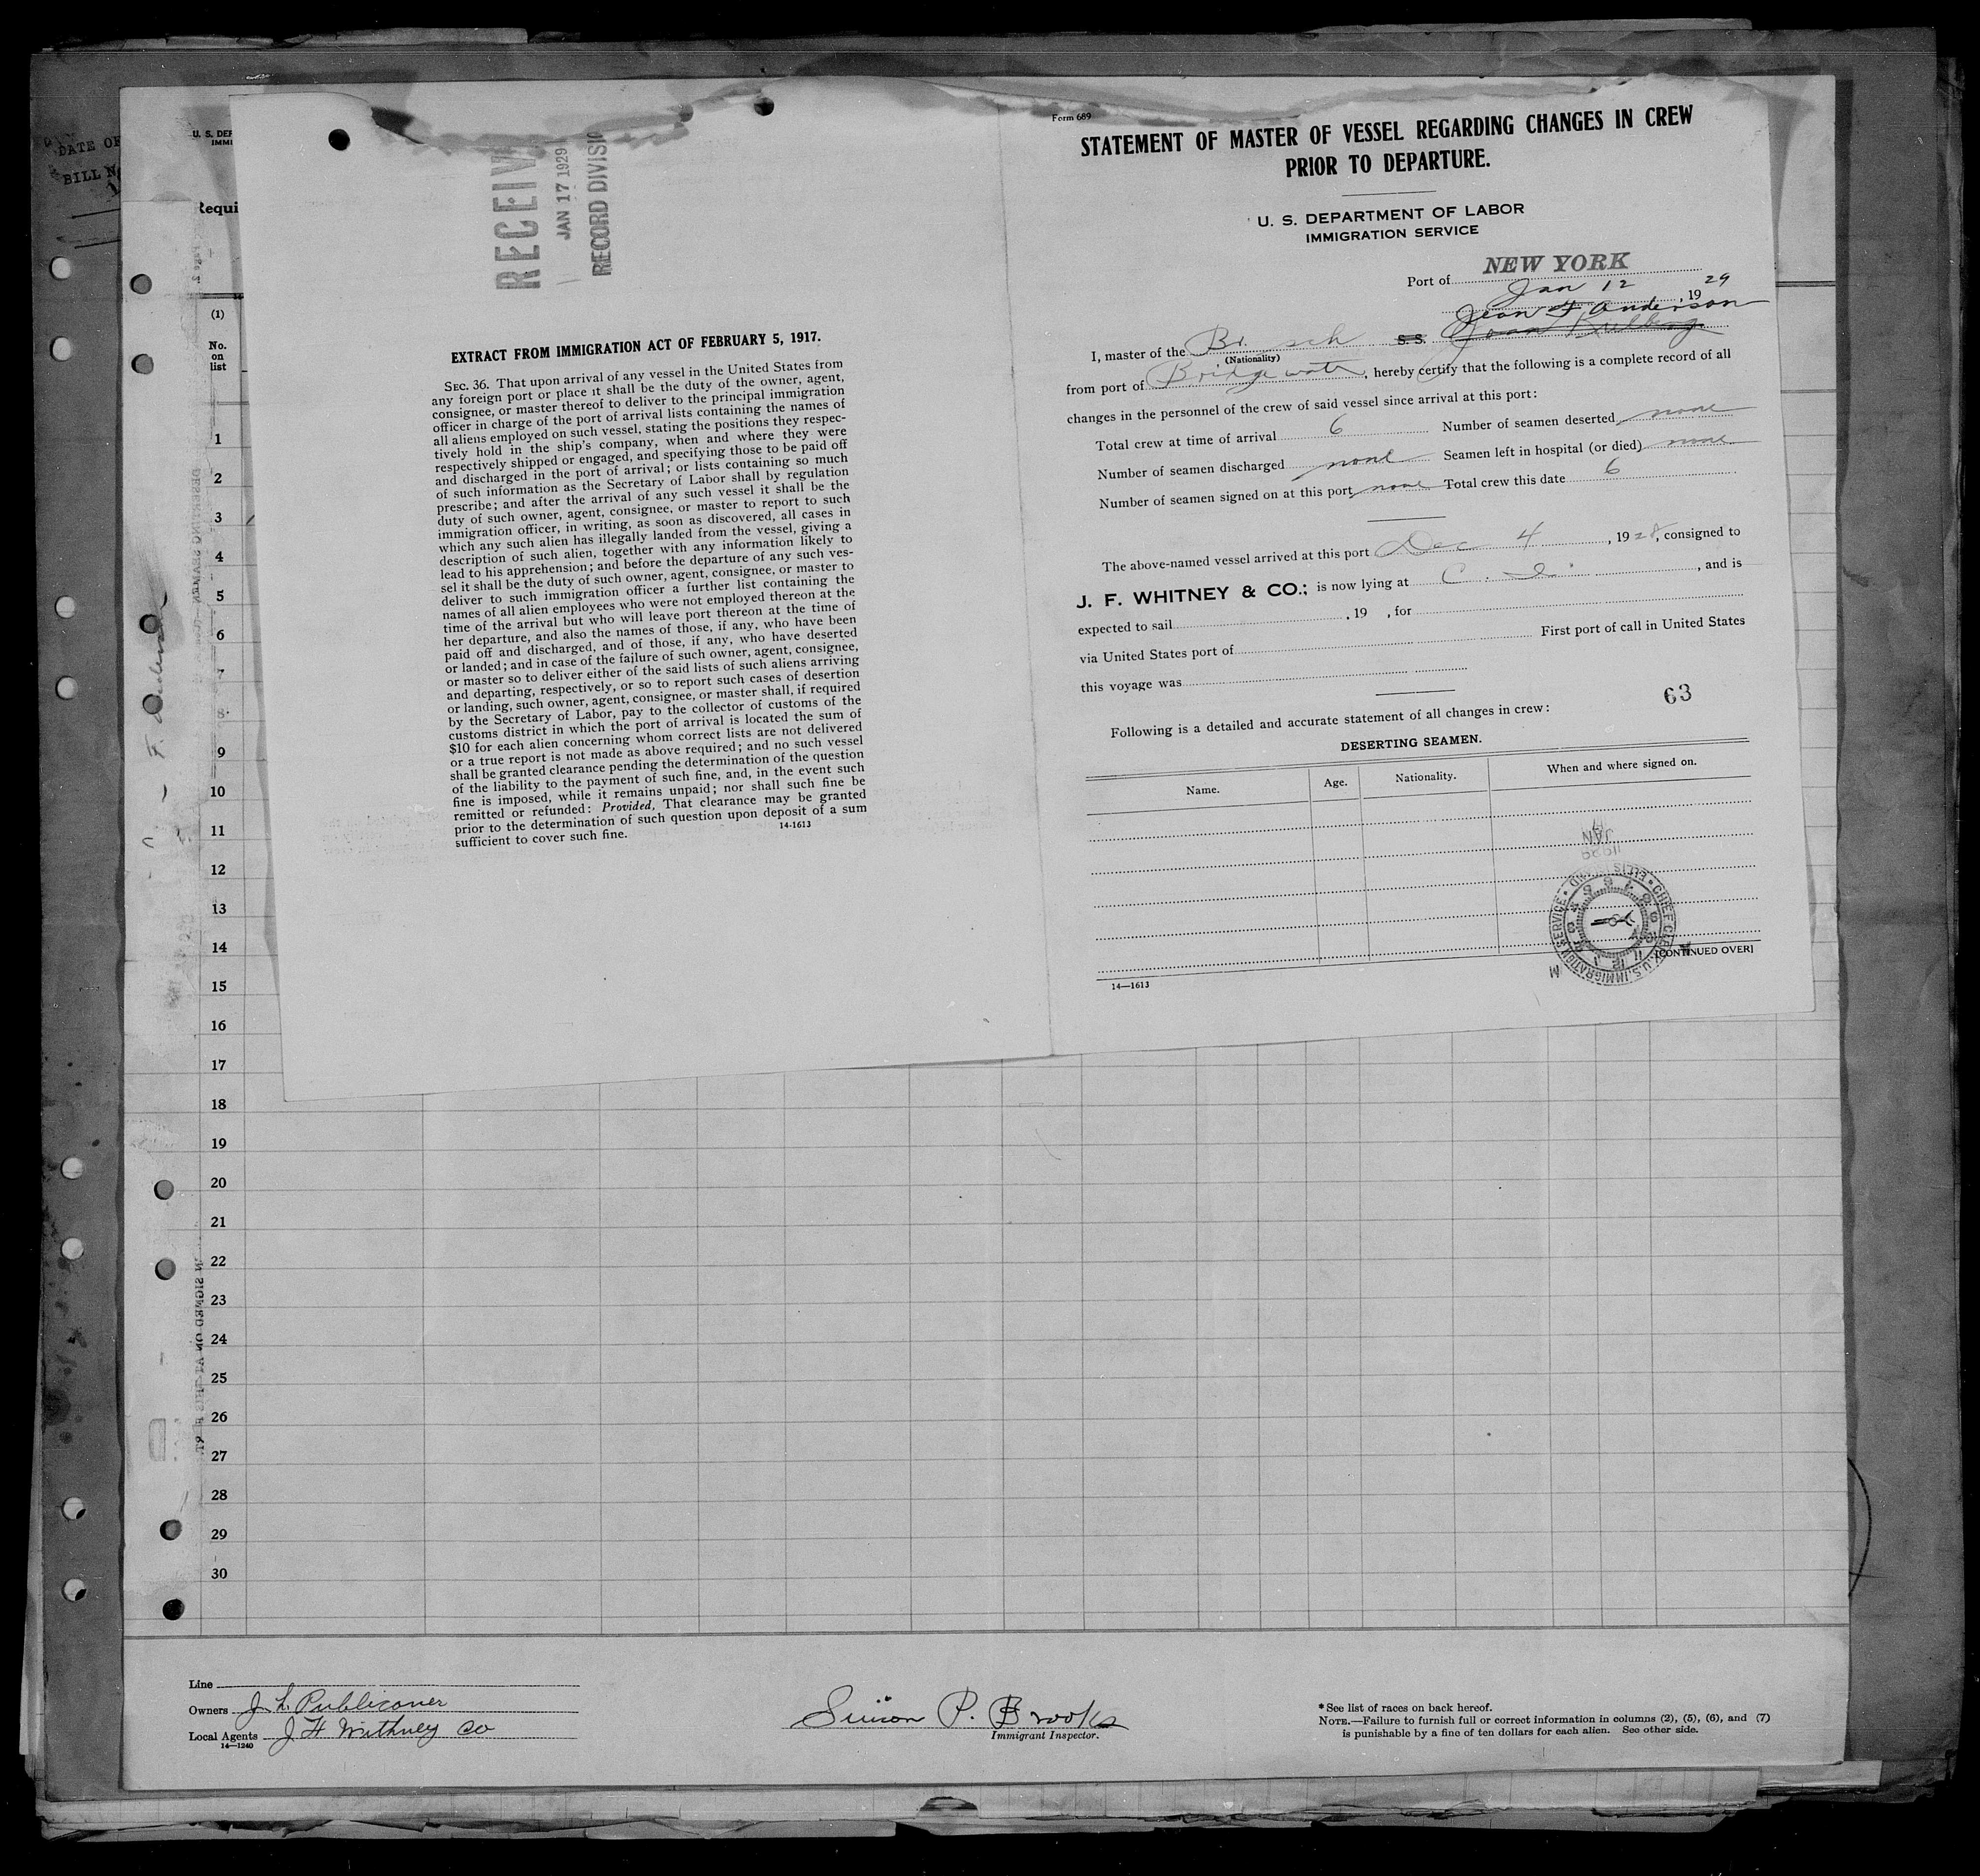 DATE OF
BILL N
U. S. DEP
IMMI
Requi
(1)
No.
on
list
1
2
3
4
5
6
7
8
9
10
11
12
13
14
15
16
17
18
19
20
21
22
23
24
25
26
27
28
29
30
RECEIV
JAN 17 1929
RECORD DIVISIO
EXTRACT FROM IMMIGRATION ACT OF FEBRUARY 5, 1917.
SEC. 36. That upon arrival of any vessel in the United States from
any foreign port or place it shall be the duty of the owner, agent,
consignee, or master thereof to deliver to the principal immigration
officer in charge of the port of arrival lists containing the names of
all aliens employed on such vessel, stating the positions they respec-
tively hold in the ship's company, when and where they were
respectively shipped or engaged, and specifying those to be paid off
and discharged in the port of arrival; or lists containing so much
of such information as the Secretary of Labor shall by regulation
prescribe; and after the arrival of any such vessel it shall be the
duty of such owner, agent, consignee, or master to report to such
immigration officer, in writing, as soon as discovered, all cases in
which any such alien has illegally landed from the vessel, giving a
description of such alien, together with any information likely to
lead to his apprehension; and before the departure of any such ves-
sel it shall be the duty of such owner, agent, consignee, or master to
deliver to such immigration officer a further list containing the
names of all alien employees who were not employed thereon at the
time of the arrival but who will leave port thereon at the time of
her departure, and also the names of those, if any, who have been
paid off and discharged, and of those, if any, who have deserted
or landed; and in case of the failure of such owner, agent, consignee,
or master so to deliver either of the said lists of such aliens arriving
and departing, respectively, or so to report such cases of desertion
or landing, such owner, agent, consignee, or master shall, if required
by the Secretary of Labor, pay to the collector of customs of the
customs district in which the port of arrival is located the sum of
$10 for each alien concerning whom correct lists are not delivered
or a true report is not made as above required; and no such vessel
shall be granted clearance pending the determination of the question
of the liability to the payment of such fine, and, in the event such
fine is imposed, while it remains unpaid; nor shall such fine be
remitted or refunded: Provided, That clearance may be granted
prior to the determination of such question upon deposit of a sum
sufficient to cover such fine.
14-1613
Form 689
STATEMENT OF MASTER OF VESSEL REGARDING CHANGES IN CREW
PRIOR TO DEPARTURE.
U. S. DEPARTMENT OF LABOR
IMMIGRATION SERVICE
Port of NEW YORK
Jan 12, 1929
Jean F Anderson
I, master of the Br. sch S. S.
(Nationality)
from port of Bridgewater, hereby certify that the following is a complete record of all
changes in the personnel of the crew of said vessel since arrival at this port:
Total crew at time of arrival 6 Number of seamen deserted none
Number of seamen discharged none Seamen left in hospital (or died) none
Number of seamen signed on at this port none Total crew this date 6
The above-named vessel arrived at this port Dec 4, 1928, consigned to
J. F. WHITNEY & CO.; is now lying at C. I., and is
expected to sail , 19 , for
via United States port of First port of call in United States
this voyage was
63
Following is a detailed and accurate statement of all changes in crew:
DESERTING SEAMEN.
Name. Age. Nationality. When and where signed on.
JAN
1929
CHIEF CLERK U.S. IMMIGRATION SERVICE ELLIS ISLAND
[CONTINUED OVER]
14—1613
Line
Owners J. L. Publicover
Local Agents J H Withney Co
14—1240
Simon P. Brooks
Immigrant Inspector.
* See list of races on back hereof.
NOTE.—Failure to furnish full or correct information in columns (2), (5), (6), and (7)
is punishable by a fine of ten dollars for each alien. See other side.